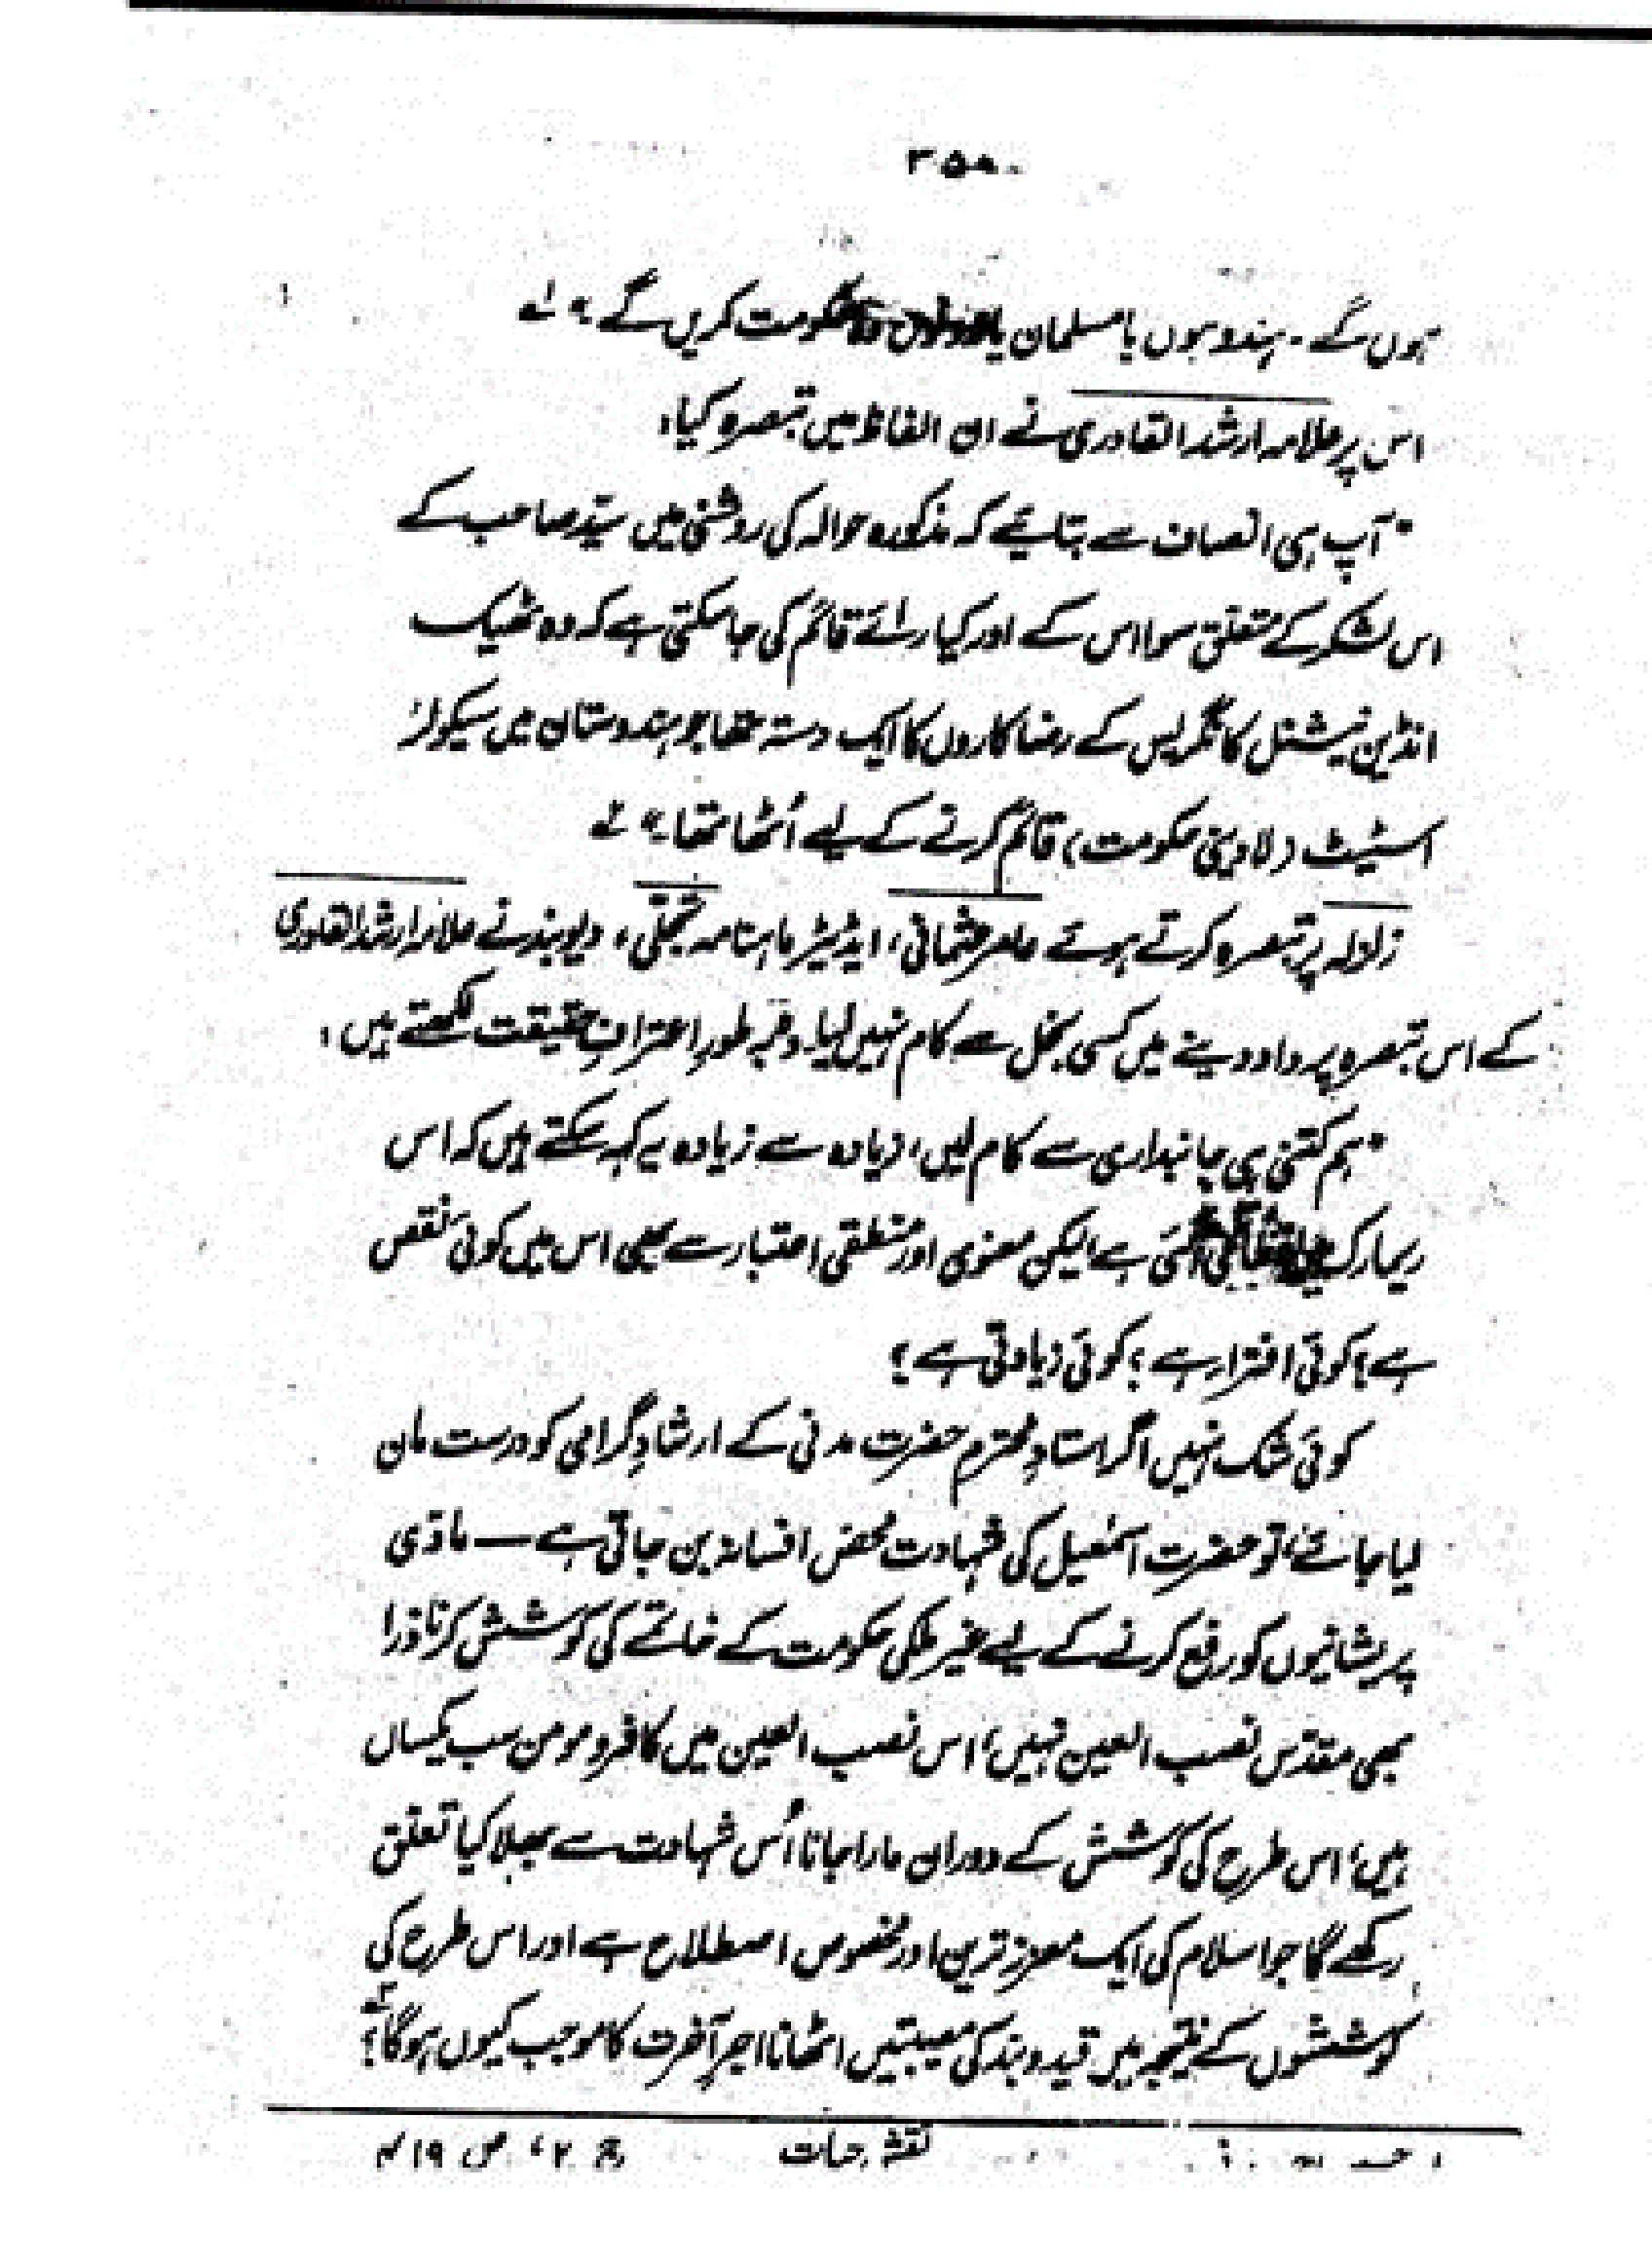 ہوں گے۔ ہندو ہوں یا مسلمان یا حکومت کریں گے "؎
اس پر علامہ ارشد القادری نے ان الفاظ میں تبصرہ کیا:
"آپ ہی انصاف سے بتایئے کہ مذکورہ حوالہ کی روشنی میں سیّد صاحب کے
اس لشکر کے متعلق سوا اس کے اور کیا رائے قائم کی جا سکتی ہے کہ وہ ٹھیک
انڈین نیشنل کانگریس کے رضا کاروں کا ایک دستہ تھا جو ہندوستان میں سیکولر
اسٹیٹ (لادینی حکومت) قائم کرنے کے لیے اُٹھا تھا "؎
زلزلہ پر تبصرہ کرتے ہوئے عامر عثمانی، ایڈیٹر ماہنامہ تجلّی، دیوبند نے علامہ ارشد القادری
کے اس تبصرہ پر داد دینے میں کسی بخل سے کام نہیں لیا۔ وہ بہ طور اعترافِ حقیقت لکھتے ہیں:
"ہم کتنی ہی جانبداری سے کام لیں، زیادہ سے زیادہ یہ کہہ سکتے ہیں کہ اس
ریمارک ہے لیکن معنوی اور منطقی اعتبار سے بھی اس میں کوئی نقص
ہے؟ کوئی افترا ہے؟ کوئی زیادتی ہے؟
کوئی شک نہیں اگر استادِ محترم حضرت مدنی کے ارشادِ گرامی کو درست مان
لیا جائے، تو حضرت اسمٰعیل کی شہادت محض افسانہ بن جاتی ہے — مادّی
پریشانیوں کو رفع کرنے کے لیے غیر ملکی حکومت کے خاتمے کی کوشش کرنا ذرا
بھی مقدّس نصب العین نہیں، اس نصب العین میں کافر و مومن سب یکساں
ہیں، اس طرح کی کوشش کے دوران مارا جانا اُس شہادت سے بھلا کیا تعلق
رکھے گا جو اسلام کی ایک معزز ترین اور مخصوص اصطلاح ہے اور اس طرح کی
کوششوں کے نتیجہ میں قید و بند کی مصیبتیں اٹھانا اجرِ آخرت کا موجب کیوں ہوگا؟
نقشِ حیات ج ۲، ص ۴۱۹